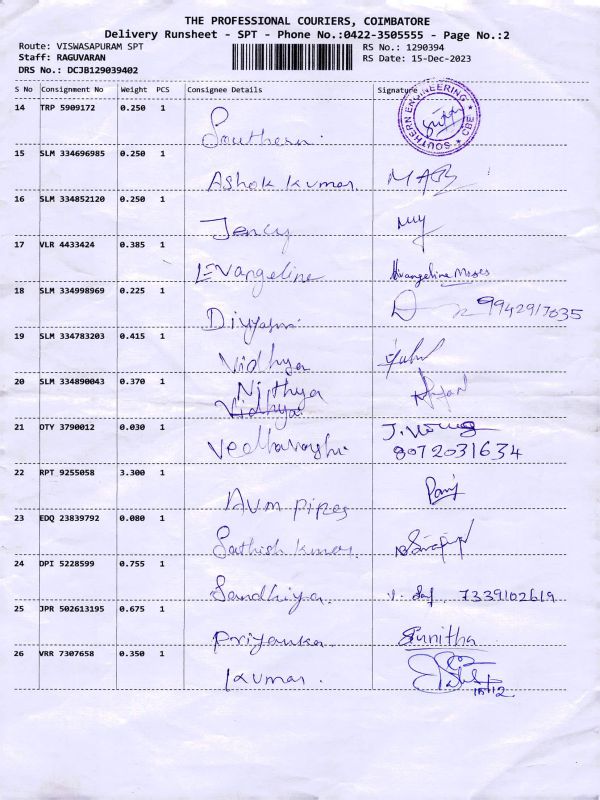 THE PROFESSIONAL COURIERS, COIMBATORE
Delivery Runsheet - SPT - Phone No.:0422-3505555 - Page No.:2
Route: VISWASAPURAM SPT
RS No.: 1290394
Staff: RAGUVARAN
RS Date: 15-Dec-2023
DRS No.: DCJB129039402
S No Consignment No Weight PCS Consignee Details Signature
14 TRP 5909172 0.250 1
Southern
SOUTHERN ENGINEERING * CBE *
15 SLM 334696985 0.250 1
Ashok kumar.
16 SLM 334852120 0.250 1
Jency
17 VLR 4433424 0.385 1
Evangeline Evangeline Moses
18 SLM 334998969 0.225 1
9942917035
19 SLM 334783203 0.415 1
Vidhya
20 SLM 334890043 0.370 1
Nithya
Vidhya
21 DTY 3790012 0.030 1
8072031634
22 RPT 9255058 3.300 1
Avm pipes
23 EDQ 23839792 0.080 1
Sathish kumar.
24 DPI 5228599 0.755 1
Sandhiya. 7339102619
25 JPR 502613195 0.675 1
Priyanka Sunitha
26 VRR 7307658 0.350 1
kumar.
15/12